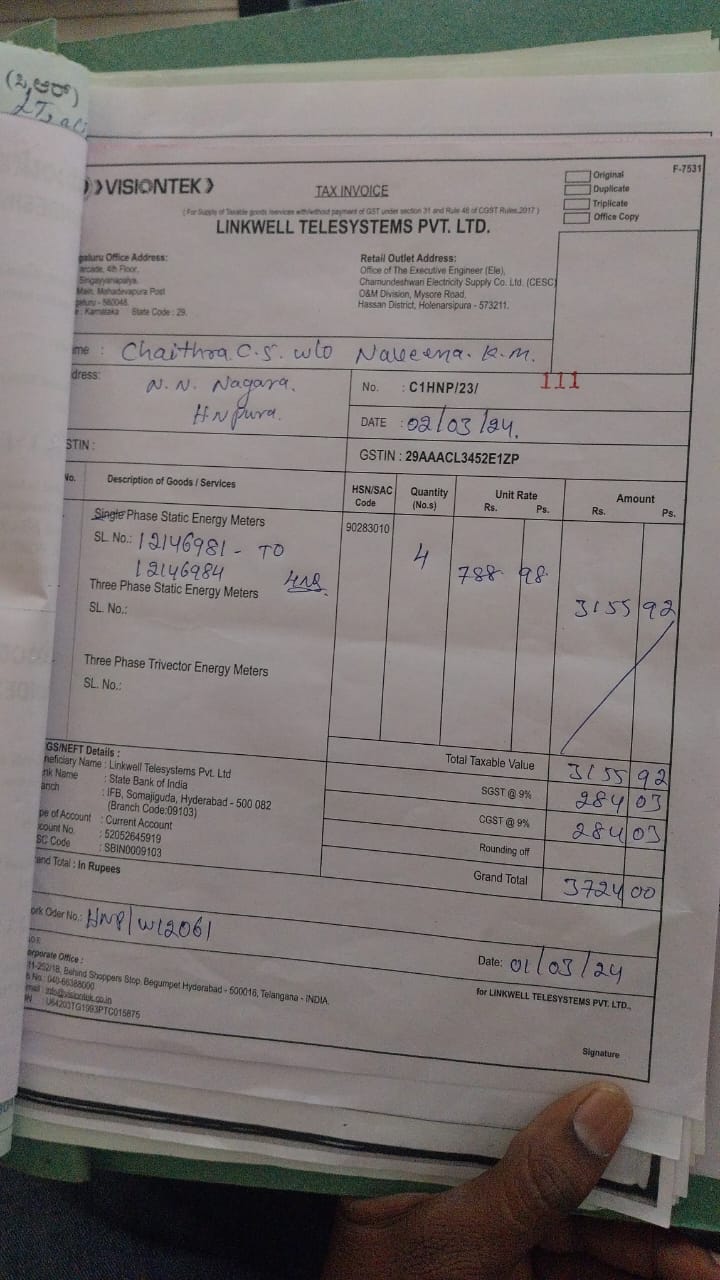 (ಓ.ಆರ್)
VISIONTEK
TAX INVOICE
Original
Duplicate
Triplicate
Office Copy
F-7531
(For Supply of Taxable goods /services with/without payment of GST under section 31 and Rule 46 of CGST Rules,2017)
LINKWELL TELESYSTEMS PVT. LTD.
galuru Office Address:
arcade, 4th Floor,
Singayyanapalya,
Main, Mahadevapura Post
galuru - 560048.
: Karnataka State Code : 29.
Retail Outlet Address:
Office of The Executive Engineer (Ele),
Chamundeshwari Electricity Supply Co. Ltd. (CESC)
O&M Division, Mysore Road,
Hassan District, Holenarsipura - 573211.
me : Chaithra. C.S. w/o Naveena. K.M.
dress: N.N. Nagara.
HNpura.
No. : C1HNP/23/ 111
DATE : 02/03/24.
STIN :
GSTIN : 29AAACL3452E1ZP
No. Description of Goods / Services HSN/SAC Code Quantity (No.s) Unit Rate Rs. Ps. Amount Rs. Ps.
Single Phase Static Energy Meters 90283010
SL. No.: 12146981 - TO
12146984 4 788 98
Three Phase Static Energy Meters 3155 92
SL. No.:
Three Phase Trivector Energy Meters
SL. No.:
GS/NEFT Details :
neficiary Name : Linkwell Telesystems Pvt. Ltd
nk Name : State Bank of India
anch : IFB, Somajiguda, Hyderabad - 500 082
(Branch Code:09103)
pe of Account : Current Account
count No. : 52052645919
SC Code : SBIN0009103
Total Taxable Value 3155 92
SGST @ 9% 284 03
CGST @ 9% 284 03
Rounding off
Grand Total 3724 00
and Total : In Rupees
ork Oder No.: HNP/W12061
Date: 01/03/24
orporate Office :
11-252/18, Behind Shoppers Stop, Begumpet Hyderabad - 500016, Telangana - INDIA.
No : 040-66388000
mail : info@visiontek.co.in
N : U64203TG1993PTC015875
for LINKWELL TELESYSTEMS PVT. LTD.,
Signature